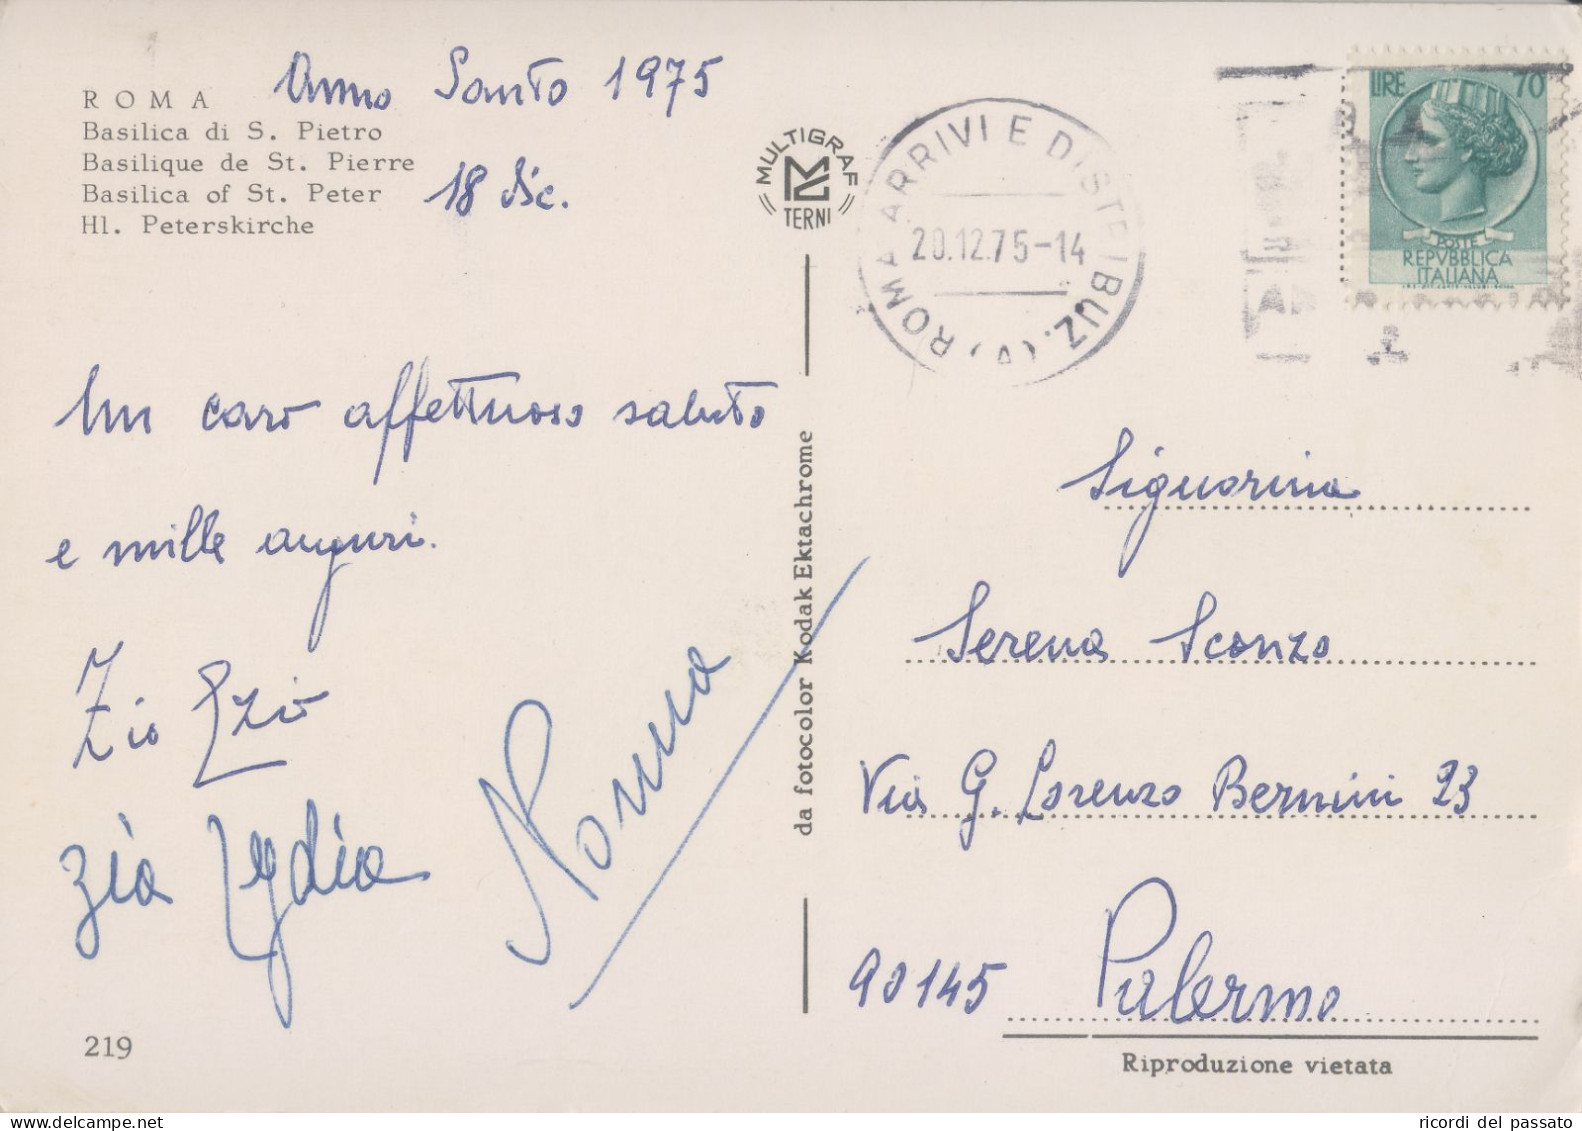 Anno Santo 1975
ROMA
Basilica di S. Pietro
Basilique de St. Pierre
Basilica of St. Peter
Hl. Peterskirche
18 Dic.
MULTIGRAF
TERNI
ROMA ARRIVI E DISTRIBUZ. (V)
20.12.75-14
LIRE 70
POSTE
REPVBBLICA
ITALIANA
Un caro affettuoso saluto
e mille auguri.
Zio Ezio
zia Lydia
Norma
da fotocolor Kodak Ektachrome
Signorina
Serena Sconzo
Via G. Lorenzo Bernini 23
90145 Palermo
219
Riproduzione vietata
ricordi del passato